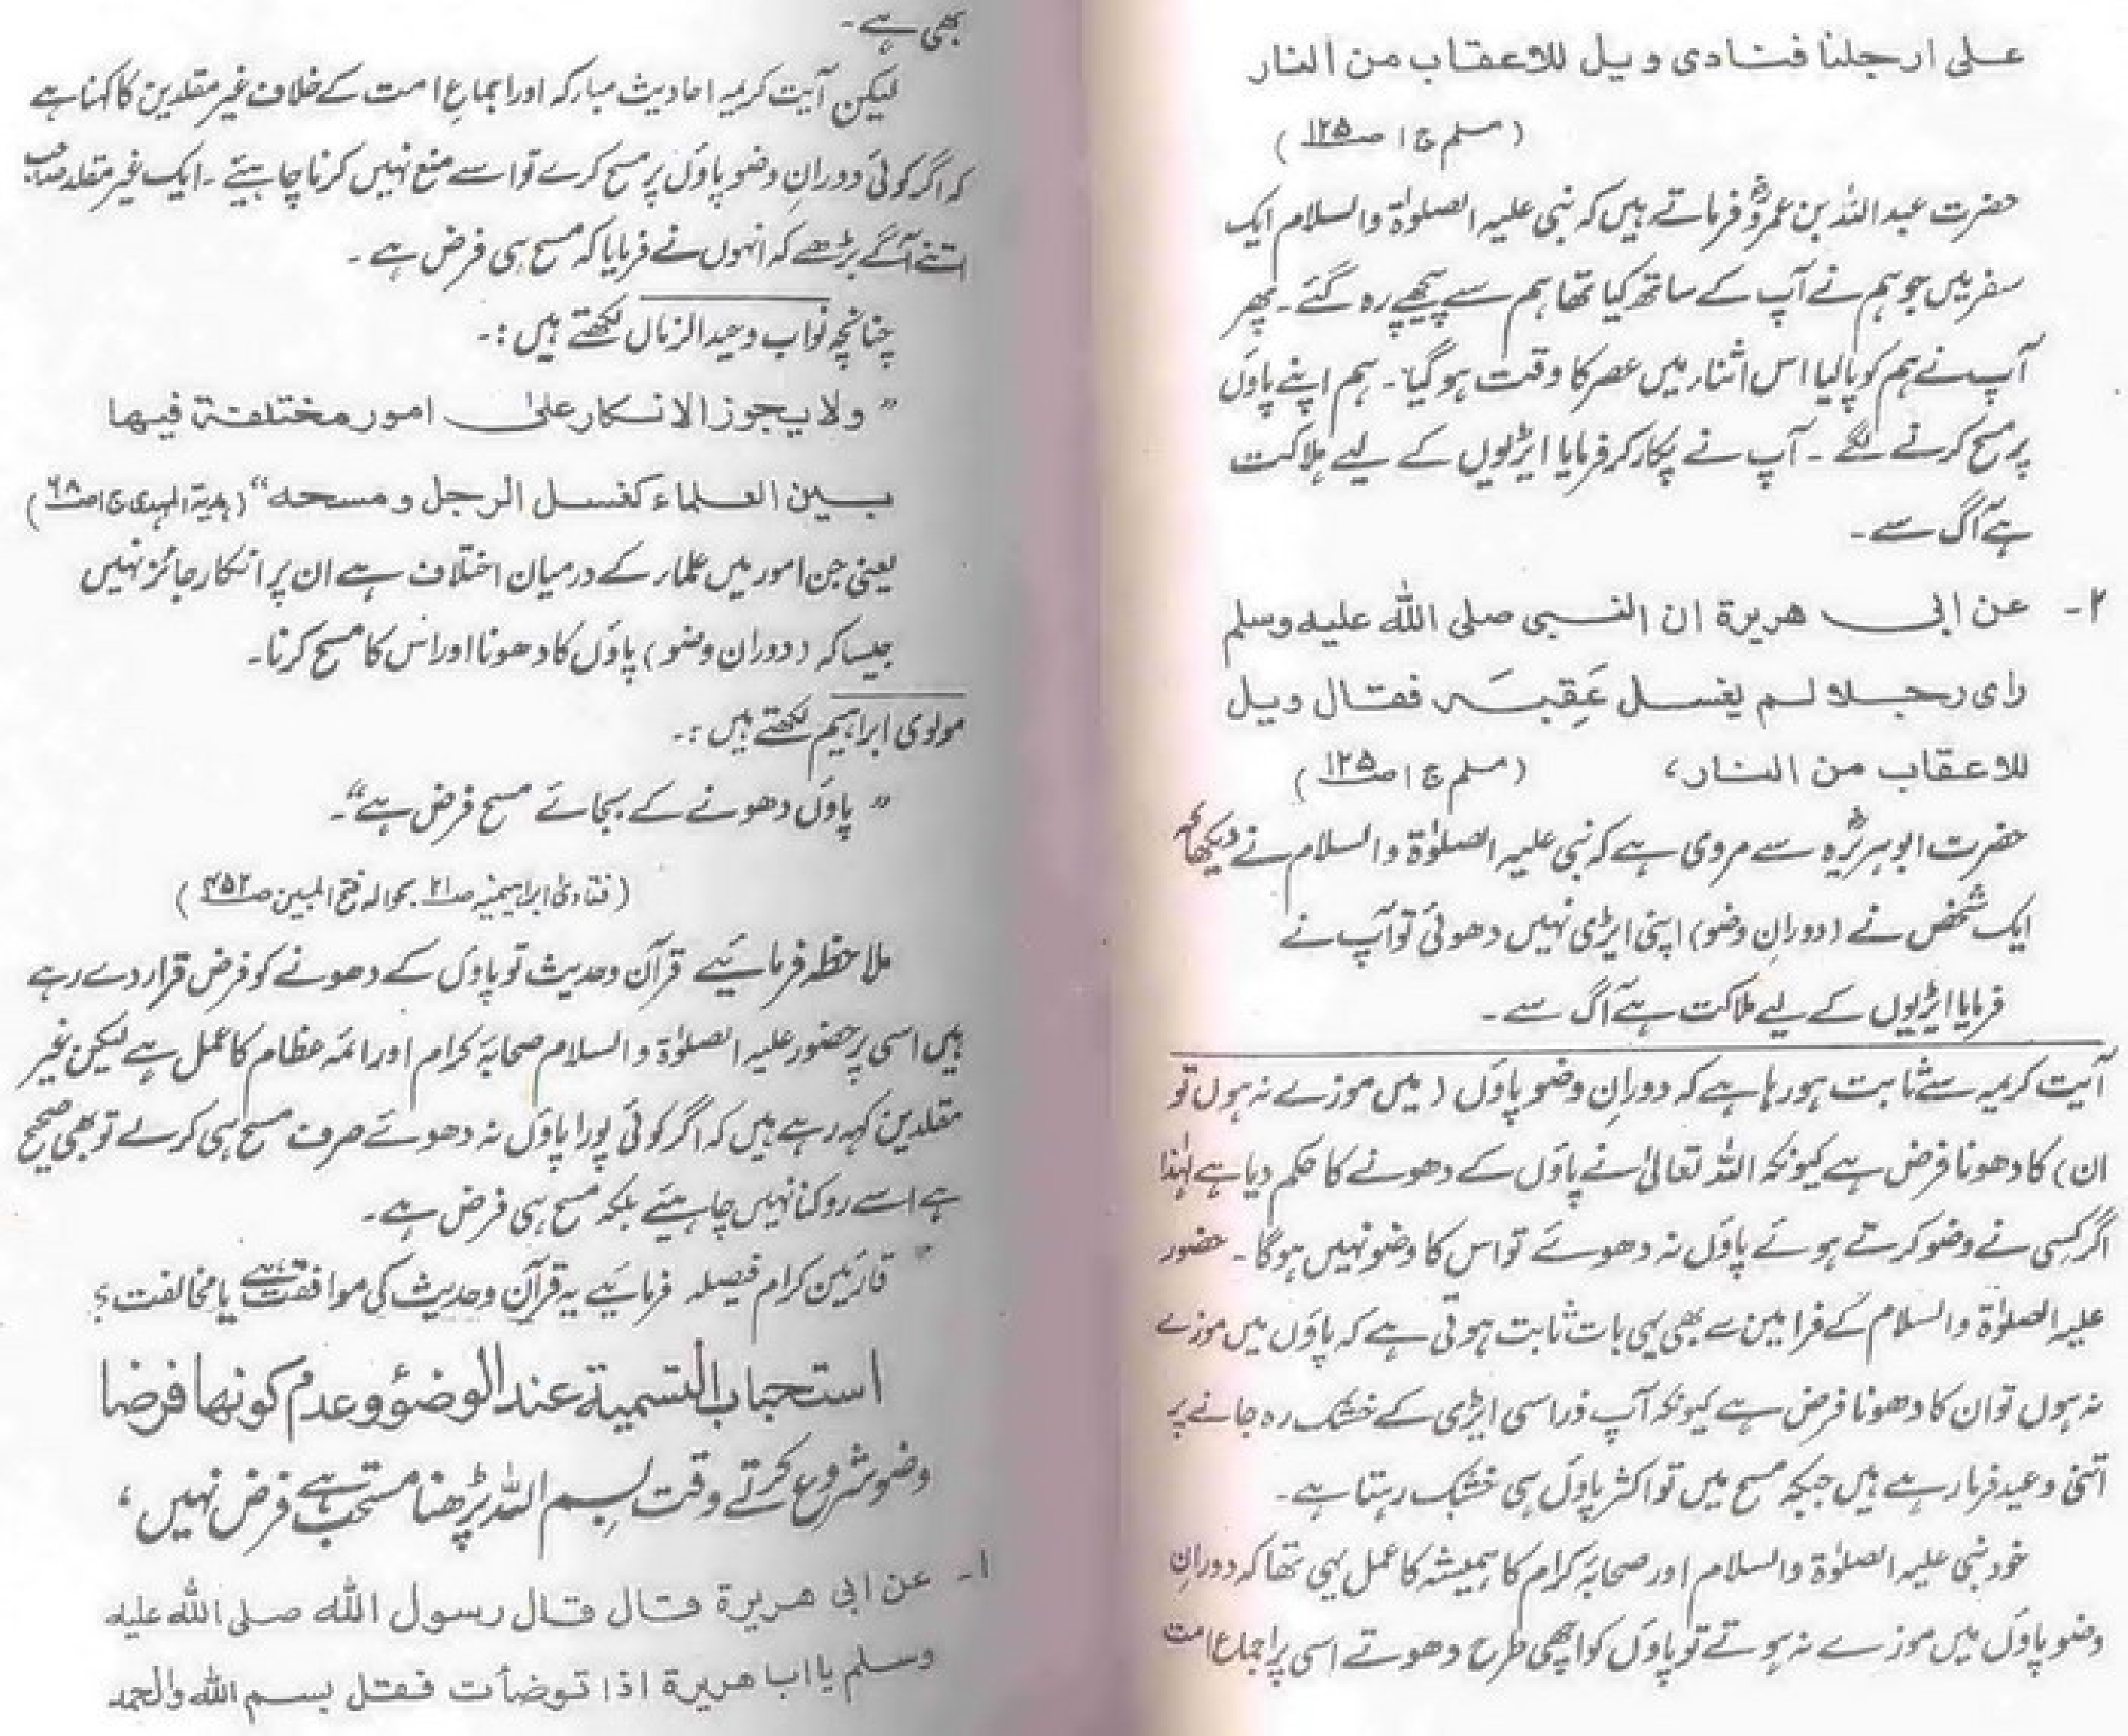 علی ارجلنا فنادی ویل للاعقاب من النار
(مسلم ج۱ ص۱۲۵)
حضرت عبداللہ بن عمروؓ فرماتے ہیں کہ نبی علیہ الصلوٰۃ والسلام ایک
سفر میں جو ہم نے آپ کے ساتھ کیا تھا ہم سے پیچھے رہ گئے۔ پھر
آپ نے ہم کو پالیا اس اثنار میں عصر کا وقت ہو گیا۔ ہم اپنے پاؤں
پر مسح کرنے لگے۔ آپ نے پکار کر فرمایا ایڑیوں کے لیے ہلاکت
ہے آگ سے۔
۲۔ عن ابی ھریرۃ ان النبی صلی اللہ علیہ وسلم
رای رجلا لم یغسل عَقِبَہ فقال ویل
للاعقاب من النار، (مسلم ج۱ ص۱۲۵)
حضرت ابوہریرہؓ سے مروی ہے کہ نبی علیہ الصلوٰۃ والسلام نے دیکھا کہ
ایک شخص نے (دوران وضو) اپنی ایڑی نہیں دھوئی تو آپ نے
فرمایا ایڑیوں کے لیے ہلاکت ہے آگ سے۔
آیت کریمہ سے ثابت ہو رہا ہے کہ دورانِ وضو پاؤں (میں موزے نہ ہوں تو
ان) کا دھونا فرض ہے کیونکہ اللہ تعالیٰ نے پاؤں کے دھونے کا حکم دیا ہے لہٰذا
اگر کسی نے وضو کرتے ہوئے پاؤں نہ دھوئے تو اس کا وضو نہیں ہو گا۔ حضور
علیہ الصلوٰۃ والسلام کے فرامین سے بھی یہی بات ثابت ہوتی ہے کہ پاؤں میں موزے
نہ ہوں تو ان کا دھونا فرض ہے کیونکہ آپ ذرا سی ایڑی کے خشک رہ جانے پر
اتنی وعید فرما رہے ہیں جبکہ مسح میں تو اکثر پاؤں ہی خشک رہتا ہے۔
خود نبی علیہ الصلوٰۃ والسلام اور صحابہ کرام کا ہمیشہ کا عمل یہی تھا کہ دورانِ
وضو پاؤں میں موزے نہ ہوتے تو پاؤں کو اچھی طرح دھوتے اسی پر اجماع امت
بھی ہے۔
لیکن آیت کریمہ احادیث مبارکہ اور اجماعِ امت کے خلاف غیر مقلدین کا کہنا ہے
کہ اگر کوئی دورانِ وضو پاؤں پر مسح کرے تو اسے منع نہیں کرنا چاہیئے۔ ایک غیر مقلد صاحب
اتنے آگے بڑھے کہ انہوں نے فرمایا کہ مسح ہی فرض ہے۔
چنانچہ نواب وحید الزماں لکھتے ہیں:۔
"ولا یجوز الانکار علیٰ امور مختلفۃ فیھا
بین العلماء کغسل الرجل ومسحہ" (ہدیۃ المہدی ج۱ ص۶۸)
یعنی جن امور میں علمار کے درمیان اختلاف ہے ان پر انکار جائز نہیں
جیسا کہ (دوران وضو) پاؤں کا دھونا اور اس کا مسح کرنا۔
مولوی ابراہیم لکھتے ہیں:۔
"پاؤں دھونے کے بجائے مسح فرض ہے"۔
(فتاویٰ ابراہیمیہ ص۲۱ بحوالہ فتح المبین ص۴۵۲)
ملاحظہ فرمائیے قرآن وحدیث تو پاؤں کے دھونے کو فرض قرار دے رہے
ہیں اسی پر حضور علیہ الصلوٰۃ والسلام صحابہ کرام اور ائمہ عظام کا عمل ہے لیکن غیر
مقلدین کہہ رہے ہیں کہ اگر کوئی پورا پاؤں نہ دھوئے صرف مسح ہی کرلے تو بھی صحیح
ہے اسے روکنا نہیں چاہیئے بلکہ مسح ہی فرض ہے۔
قارئین کرام فیصلہ فرمائیے یہ قرآن وحدیث کی موافقت ہے یا مخالفت؟
استحباب التسمیۃ عند الوضوٴ وعدم کونھا فرضا
وضو شروع کرتے وقت بسم اللہ پڑھنا مستحب ہے فرض نہیں،
۱۔ عن ابی ھریرۃ قال قال رسول اللہ صلی اللہ علیہ
وسلم یا ابا ھریرۃ اذا توضأت فقل بسم اللہ والحمد